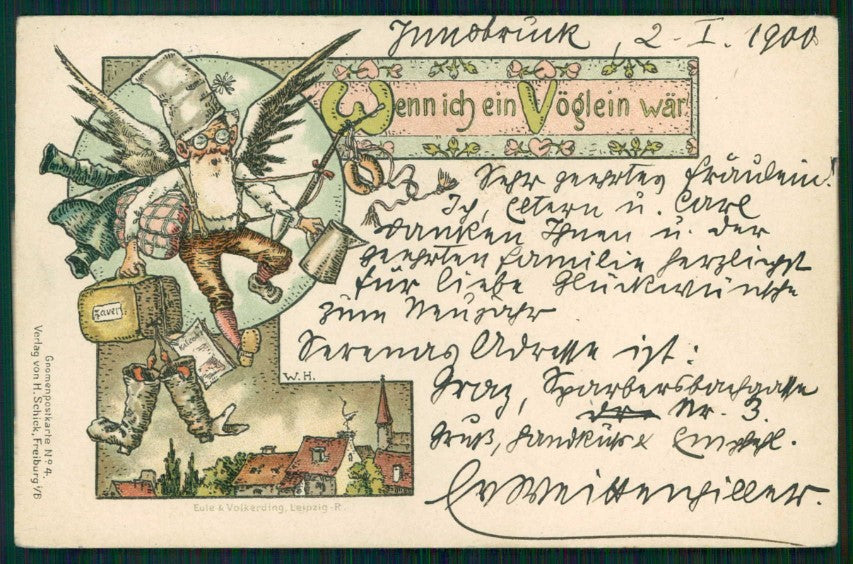 Innsbruck, 2-I. 1900
Wenn ich ein Vöglein wär
Sehr geehrtes Fräulein!
Ich, Eltern u. Carl
danken Ihnen u. der
geehrten Familie herzlichst
für liebe Glückwünsche
zum Neujahr
Serenas Adresse ist:
Graz, Sparbersbachgasse
Nr. 3.
Gruß, Handkuß & Empfehl.
W.H.
Gnomenpostkarte No 4.
Verlag von H. Schick, Freiburg i/B
Eule & Volkerding, Leipzig-R.